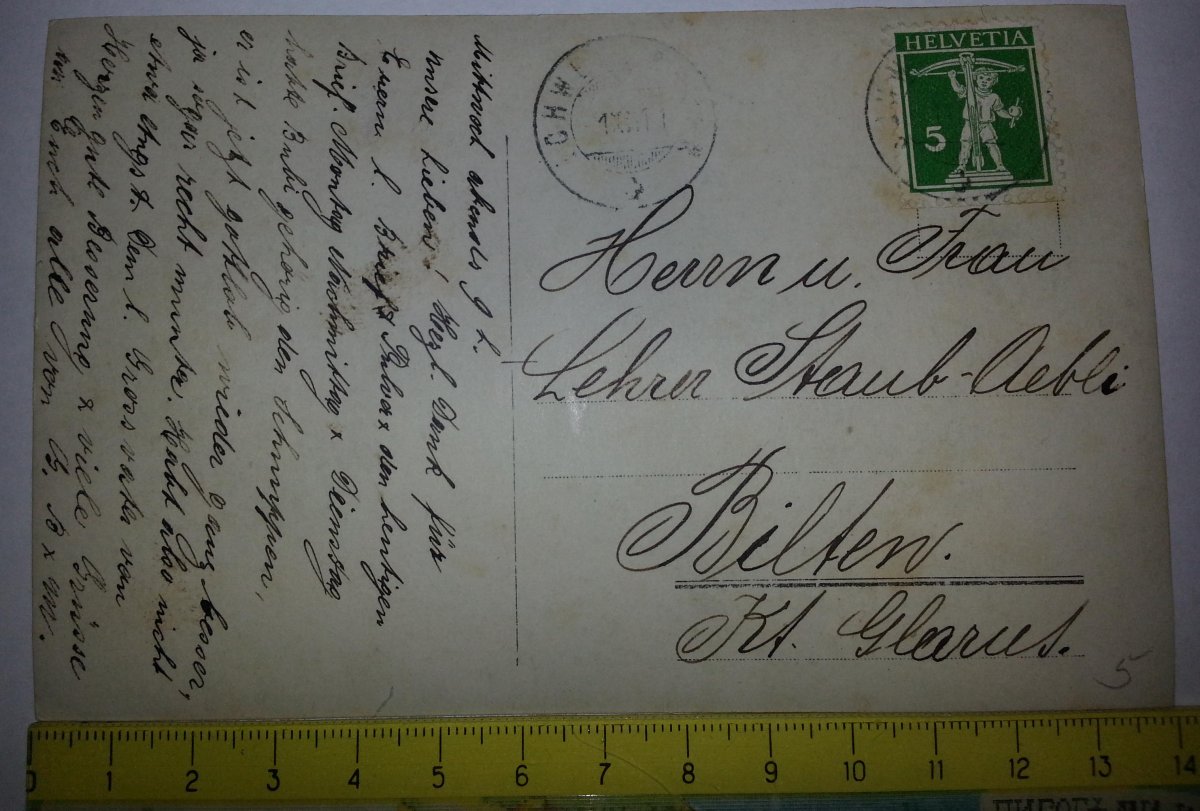 Mittwoch abends 9 h.
Unsere Lieben! Herzl. Dank für
Euern l. Brief & den heutigen
Brief. Montag Nachmittag & Dienstag
hatte Bubi gehörig den Schnuppen,
er ist jetzt gottlob wieder ganz besser,
ja sogar recht munter. Habt also nicht
etwa Angst. Dem l. Grossvater von
Herzen gute Besserung & viele Grüsse
an Euch alle von
HELVETIA
5
Herrn u. Frau
Lehrer Staub-Aebli
Bilten.
Kt. Glarus.
5
0 1 2 3 4 5 6 7 8 9 10 11 12 13 14